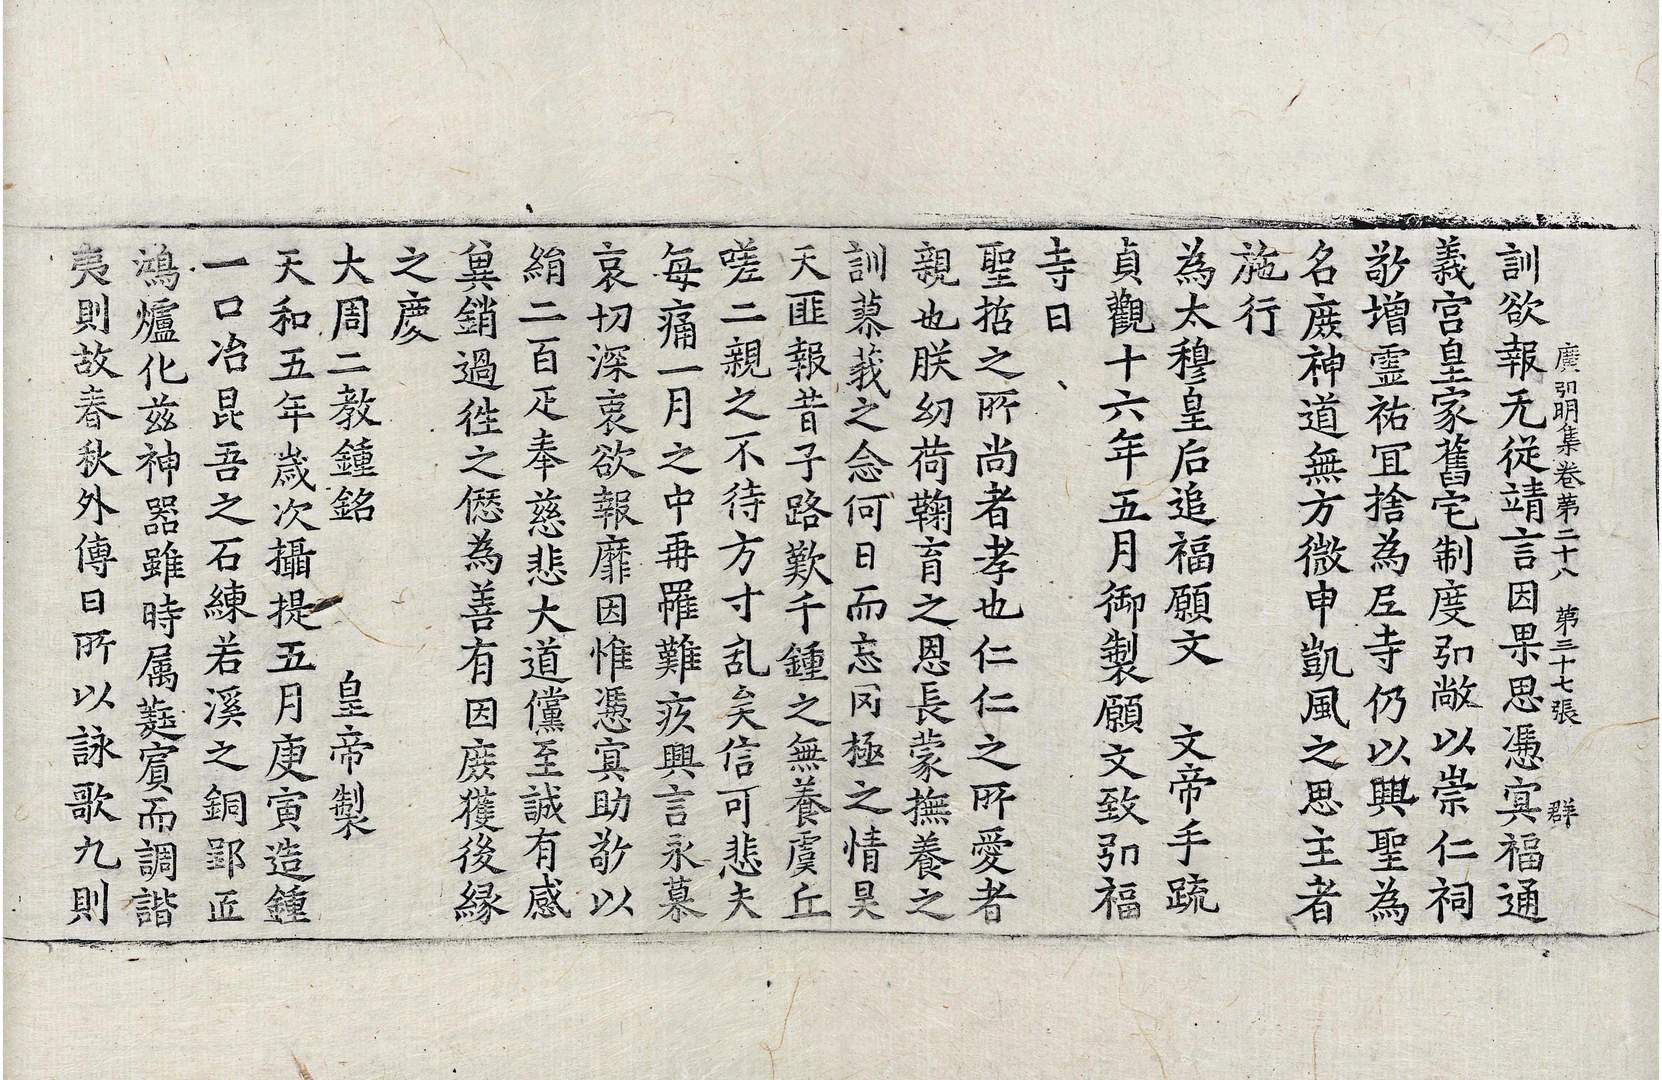 廣弘明集卷第二十八 第三十七張 群
訓欲報无從靖言因果思憑冥福通
義宮皇家舊宅制度弘敞以崇仁祠
敬增霊祐冝捨為尼寺仍以興聖為
名庻神道無方微申凱風之思主者
施行
為太穆皇后追福願文 文帝手䟽
貞觀十六年五月御製願文致弘福
寺曰
聖哲之所尚者孝也仁仁之所愛者
親也朕幼荷鞠育之恩長蒙撫養之
訓蓼莪之念何日而忘罔極之情昊
天匪報昔子路歎千鍾之無養虞丘
嗟二親之不待方寸乱矣信可悲夫
每痛一月之中再罹難疚興言永慕
哀切深衷欲報靡因惟憑冥助敬以
絹二百疋奉慈悲大道儻至誠有感
冀銷過徃之愆為善有因庻獲後縁
之慶
大周二教鍾銘 皇帝製
天和五年歳次攝提五月庚寅造鍾
一口冶昆吾之石練若溪之銅郢匠
鴻爐化兹神器雖時属蕤賓而調諧
夷則故春秋外傳曰所以詠歌九則